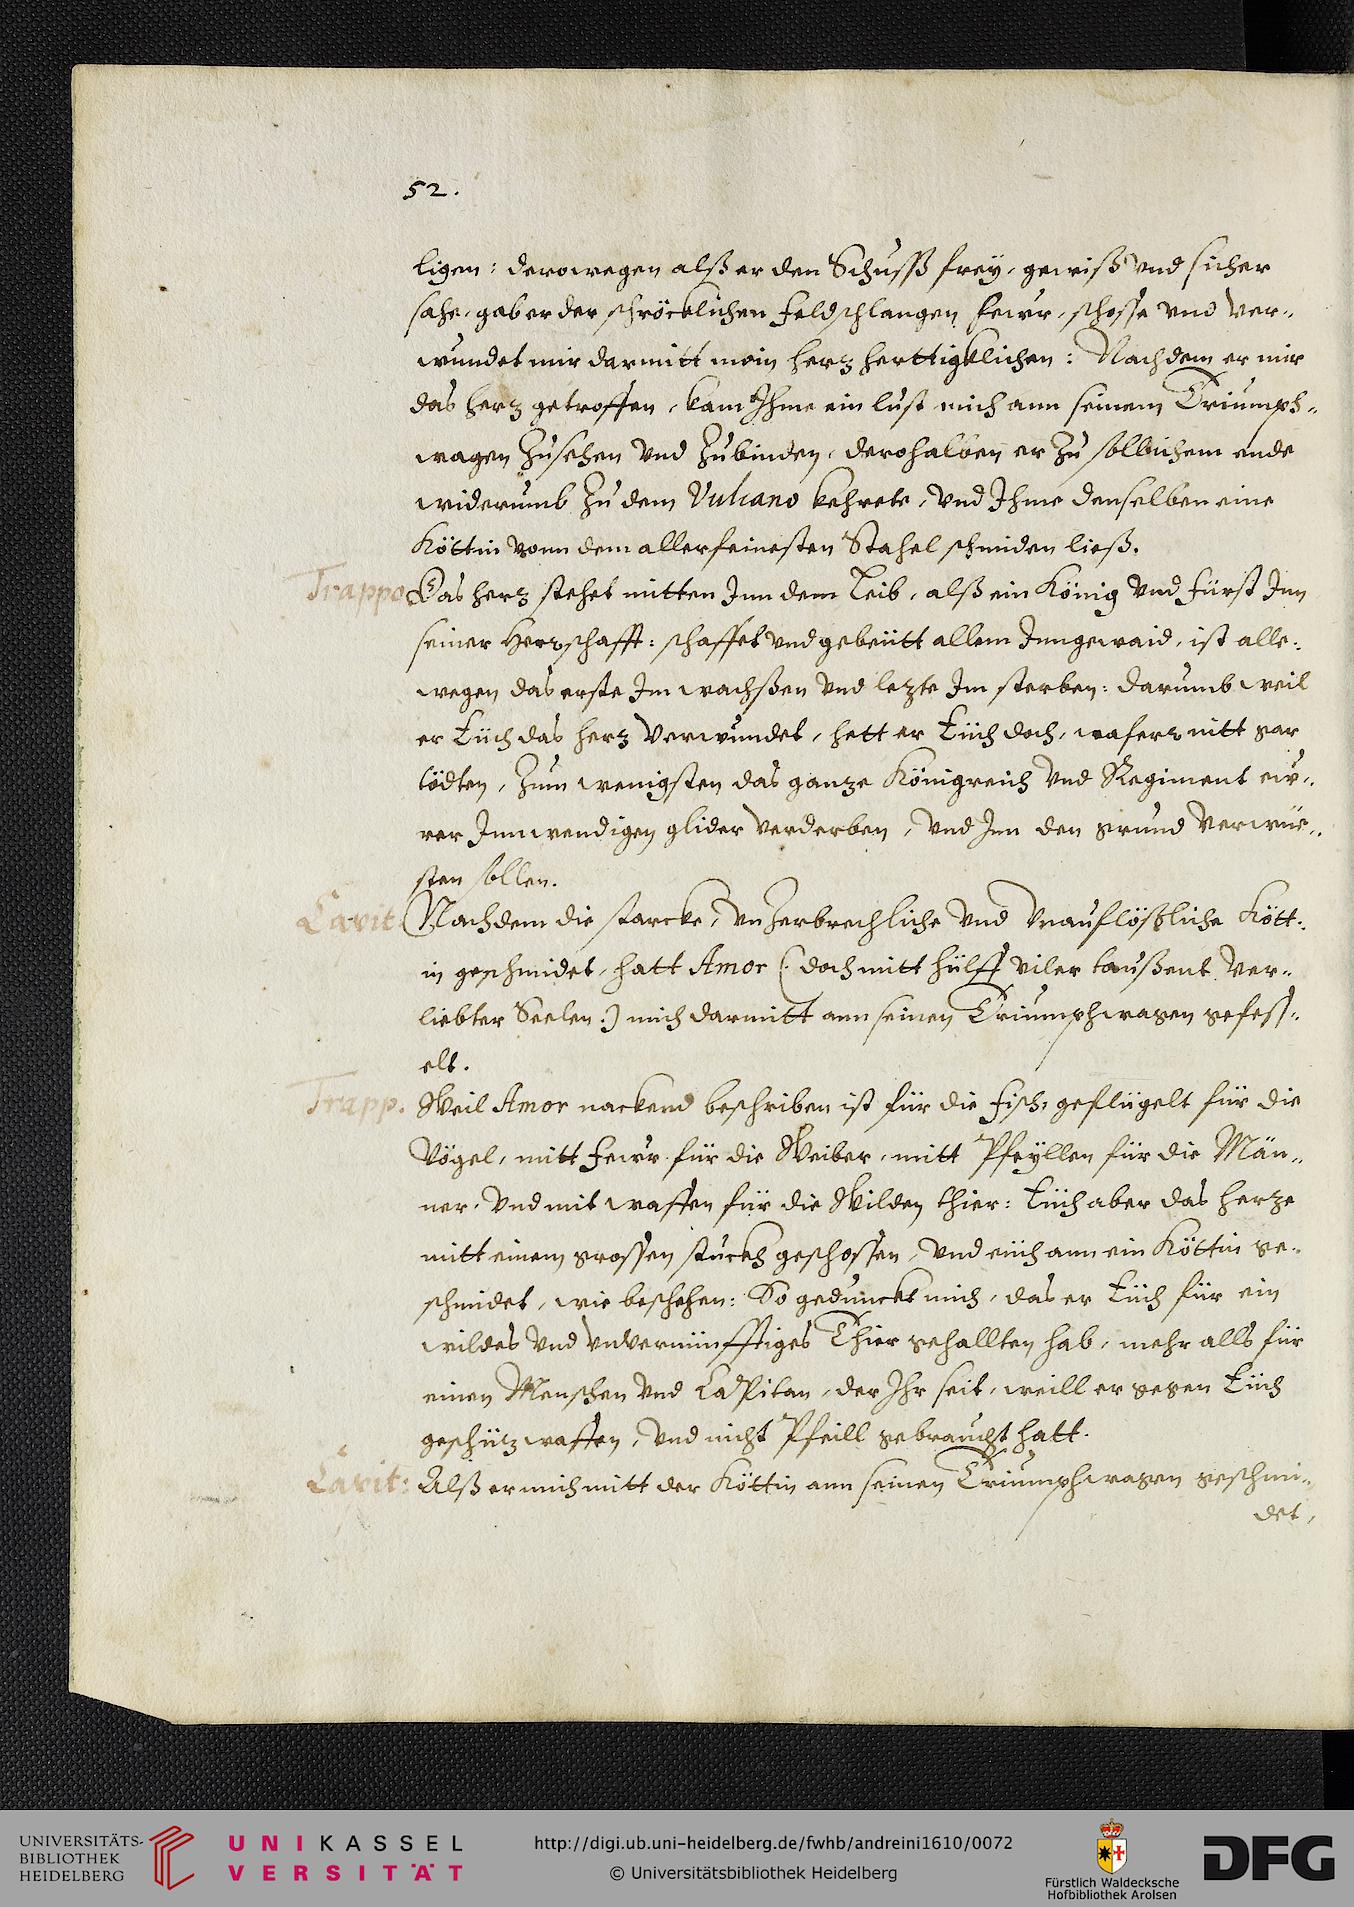 52.
ligen: derowegen alß er den Schusß freÿ, gewiß vnd sicher
sahe, gab er der schröcklichen Feldschlangen Fewr, schosse vnd ver-
wundet mir darmitt mein herz herttigklichen: Nachdem er mir
das herz getroffen, kam Ihme ein lust mich ann seinem Triumph-
wagen zusehen vnd zubinden, derohalben er zu sollichem ende
widerumb zu dem Vulcano kehrete, vnd Ihme denselben eine
Köttin vonn dem allerfeinesten Stahel schmiden ließ.
Trappo Das herz stehet mitten Inn dem Leib, alß ein König vnd Fürst Inn
seiner Herrschafft: schaffet vnd gebeütt allem Inngewaid, ist alle-
wegen das erste Im wachßen vnd lezte Im sterben: darumb weil
er Eüch das herz verwundet, hett er Eüch doch, wafern nitt gar
tödten, zum wenigsten das ganze Königreich vnd Regiment ew-
rer Innwendigen glider verderben, vnd Inn den grund verwüe-
sten sollen.
Cavit. Nachdem die starcke, vnzerbrechliche vnd vnauflößliche Kött-
in geschmidet, hatt Amor (: doch mitt hülff viler taußent ver-
liebter Seelen:) mich darmitt ann seinen Triumphwagen gefess-
elt.
Trapp. Weil Amor nackend beschriben ist für die Fisch, geflügelt für die
Vögel, mitt Fewr für die Weiber, mitt Pfeÿllen für die Män-
ner, vnd mit waffen für die Wilden thier: Eüch aber das herze
mitt einem grossen stuckh geschossen, vnd eüch ann ein Köttin ge-
schmidet, wie beschehen: So geduncket mich, das er Eüch für ein
wildes vnd vnvernünfftiges Thier gehallten hab, mehr alls für
einen Menschen vnd Capitan, der Ihr seit, weill er gegen Eüch
geschüz waffen, vnd nicht Pfeill gebraucht hatt.
Cavit: Alß er mich mitt der Köttin ann seinen Triumphwagen geschmi-
det,
UNIVERSITÄTS-
BIBLIOTHEK
HEIDELBERG
UNIKASSEL
VERSITÄT
http://digi.ub.uni-heidelberg.de/fwhb/andreini1610/0072
© Universitätsbibliothek Heidelberg
Fürstlich Waldecksche
Hofbibliothek Arolsen
DFG